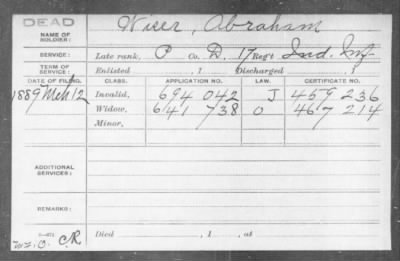 DEAD
NAME OF SOLDIER: Wiser, Abraham
SERVICE: Late rank, P Co. D, 17 Reg't Ind. Inf
TERM OF SERVICE: Enlisted , 1 Discharged , 1
DATE OF FILING. CLASS. APPLICATION NO. LAW. CERTIFICATE NO.
1889 Mch 12 Invalid, 694 042 J 459 236
Widow, 641 738 O 467 214
Minor,
ADDITIONAL SERVICES:
REMARKS:
Died , 1 , at
C.R.